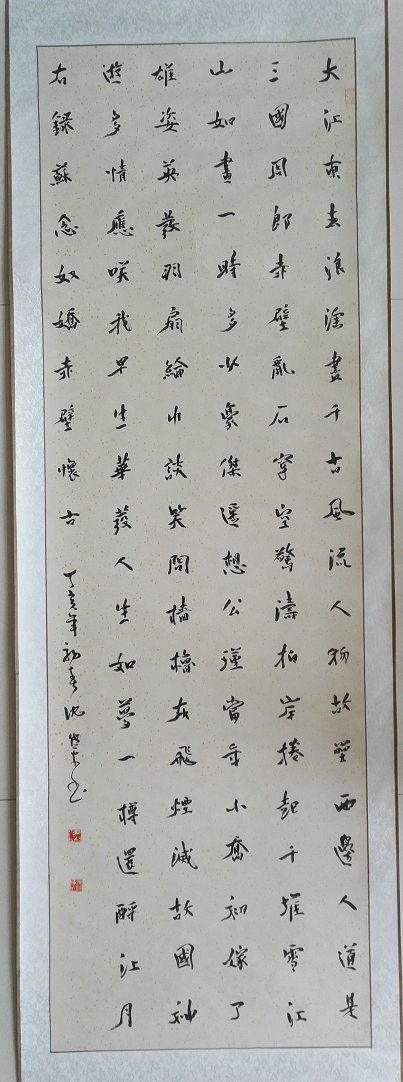 大江東去浪淘盡千古風流人物故壘西邊人道是
三國周郎赤壁亂石穿空驚濤拍岸捲起千堆雪江
山如畫一時多少豪傑遙想公瑾當年小喬初嫁了
雄姿英發羽扇綸巾談笑間檣櫓灰飛煙滅故國神
遊多情應咲我早生華發人生如夢一樽還酹江月
右錄蘇念奴嬌赤壁懷古 丁亥年初春沈書